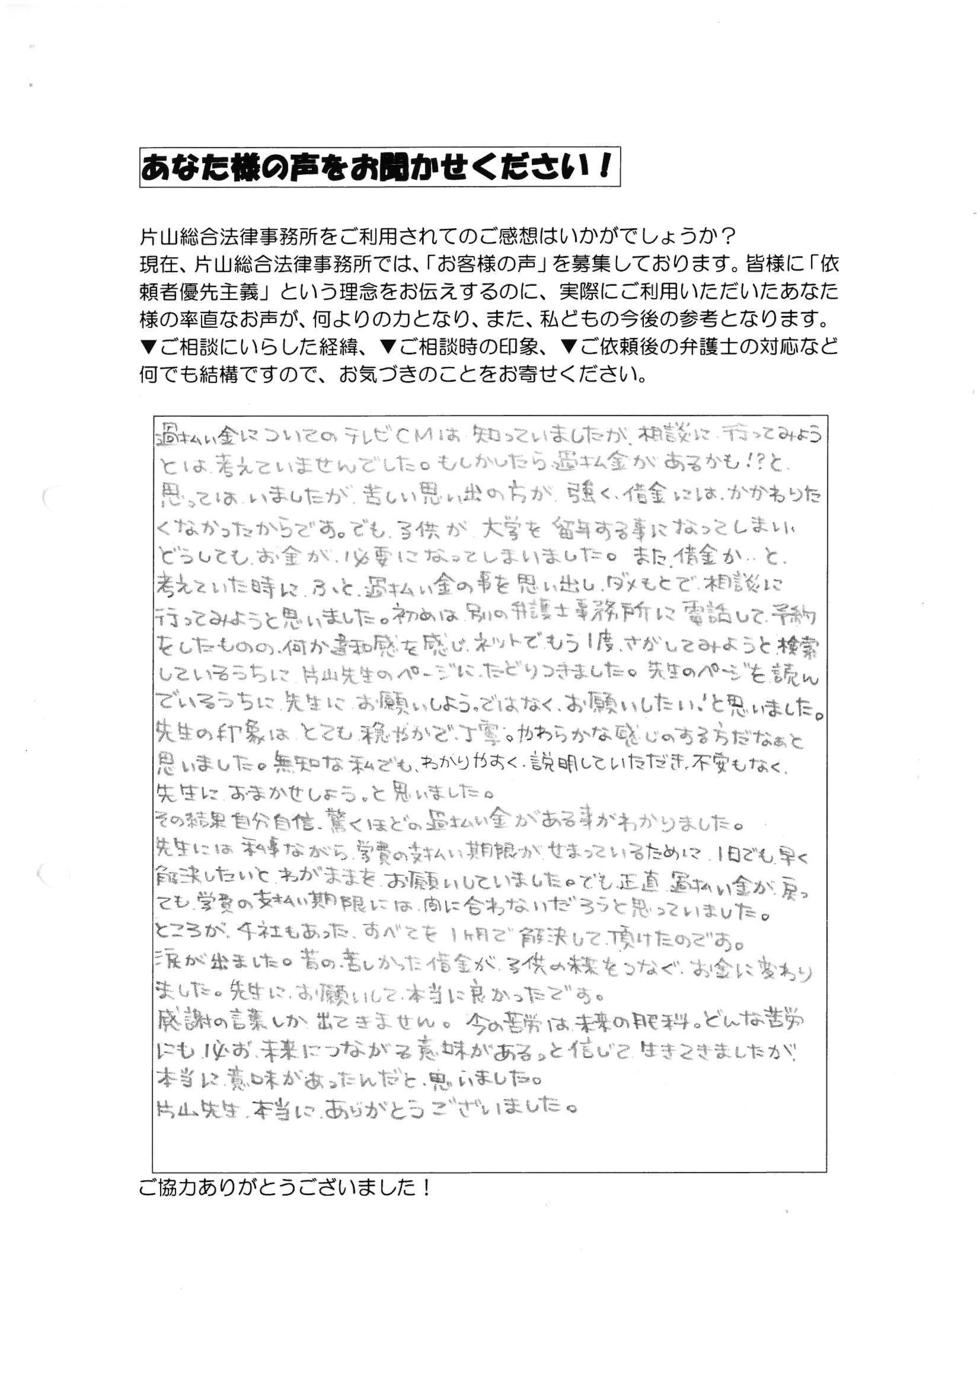 あなた様の声をお聞かせください！
片山総合法律事務所をご利用されてのご感想はいかがでしょうか？
現在、片山総合法律事務所では、「お客様の声」を募集しております。皆様に「依
頼者優先主義」という理念をお伝えするのに、実際にご利用いただいたあなた
様の率直なお声が、何よりの力となり、また、私どもの今後の参考となります。
▼ご相談にいらした経緯、▼ご相談時の印象、▼ご依頼後の弁護士の対応など
何でも結構ですので、お気づきのことをお寄せください。
過払い金についてのテレビCMは、知っていましたが、相談に、行ってみよう
とは、考えていませんでした。もしかしたら、過払金があるかも!?と、
思っては、いましたが、苦しい思い出の方が、強く、借金には、かかわりた
くなかったからです。でも、子供が、大学を留年する事になってしまい、
どうしても、お金が、必要になってしまいました。また、借金か‥と、
考えていた時に、ふと、過払い金の事を思い出し、ダメもとで、相談に
行ってみようと思いました。初めは、別の弁護士事務所に電話して、予約
をしたものの、何か違和感を感じ、ネットでもう1度、さがしてみようと、検索
しているうちに、片山先生のページに、たどりつきました。先生のページを、読ん
でいるうちに、先生に、お願いしよう。ではなく、お願いしたい!と思いました。
先生の印象は、とても、穏やかで、丁寧。やわらかな感じのする方だなぁと
思いました。無知な私でも、わかりやすく、説明していただき、不安もなく、
先生に、おまかせしよう。と思いました。
その結果、自分自信、驚くほどの過払い金がある事がわかりました。
先生には、私事ながら、学費の支払い期限が、せまっているために、1日でも、早く
解決したいと、わがままを、お願いしていました。でも、正直、過払い金が、戻っ
ても、学費の支払い期限には、間に合わないだろうと思っていました。
ところが、4社もあった、すべてを1ヶ月で、解決して、頂けたのです。
涙が出ました。昔の、苦しかった借金が、子供の未来をつなぐ、お金に変わり
ました。先生に、お願いして、本当に良かったです。
感謝の言葉しか、出てきません。今の苦労は、未来の肥料。どんな苦労
にも、必ず、未来につながる意味がある。っと信じて、生きてきましたが、
本当に、意味があったんだと、思いました。
片山先生、本当に、ありがとうございました。
ご協力ありがとうございました！